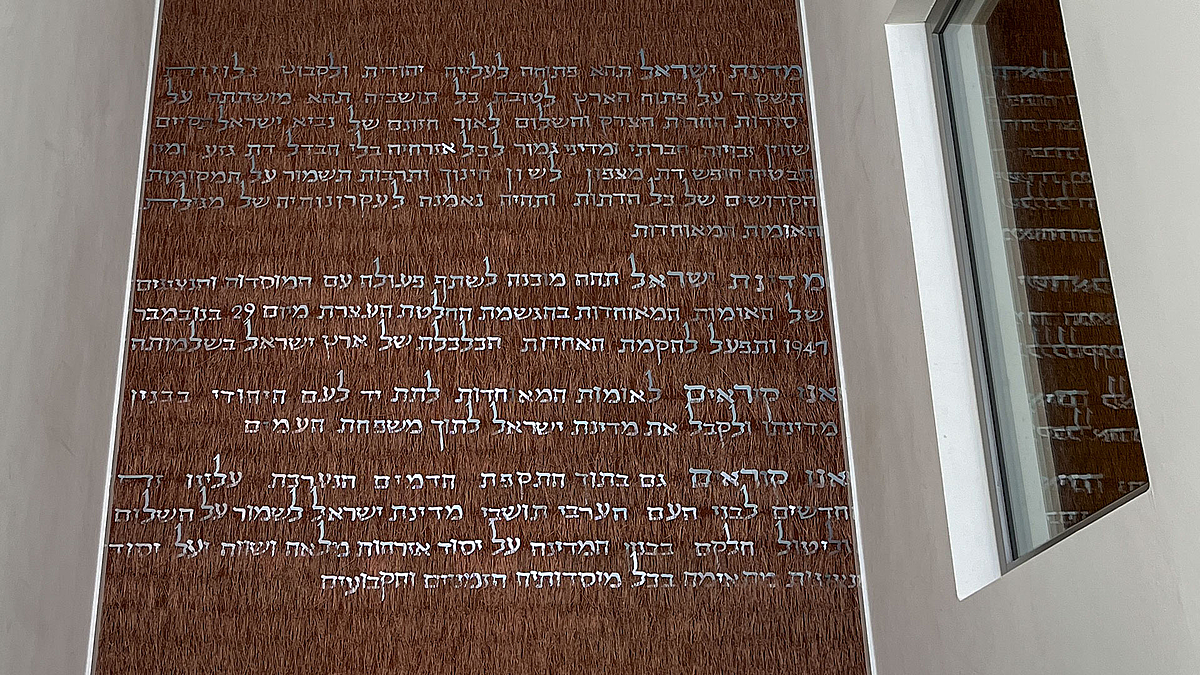 מדינת ישראל תהא פתוחה לעליה יהודית ולקבוץ גלויות
תשקוד על פתוח הארץ לטובת כל תושביה תהא מושתתה על
יסודות החרות הצדק והשלום לאור חזונם של נביאי ישראל תקיים
שויון זכויות חברתי ומדיני גמור לכל אזרחיה בלי הבדל דת גזע ומין
תבטיח חופש דת מצפון לשון חינוך ותרבות תשמור על המקומות
הקדושים של כל הדתות ותהיה נאמנה לעקרונותיה של מגילת
האומות המאוחדות
מדינת ישראל תהא מוכנה לשתף פעולה עם המוסדות והנציגים
של האומות המאוחדות בהגשמת החלטת העצרת מיום 29 בנובמבר
1947 ותפעל להקמת האחדות הכלכלית של ארץ ישראל בשלמותה
אנו קוראים לאומות המאוחדות לתת יד לעם היהודי בבנין
מדינתו ולקבל את מדינת ישראל לתוך משפחת העמים
אנו קוראים גם בתוך התקפת הדמים הנערכת עלינו זה
חדשים לבני העם הערבי תושבי מדינת ישראל לשמור על השלום
וליטול חלקם בבנין המדינה על יסוד אזרחות מלאה ושווה ועל יסוד
נציגות מתאימה בכל מוסדותיה הזמניים והקבועים